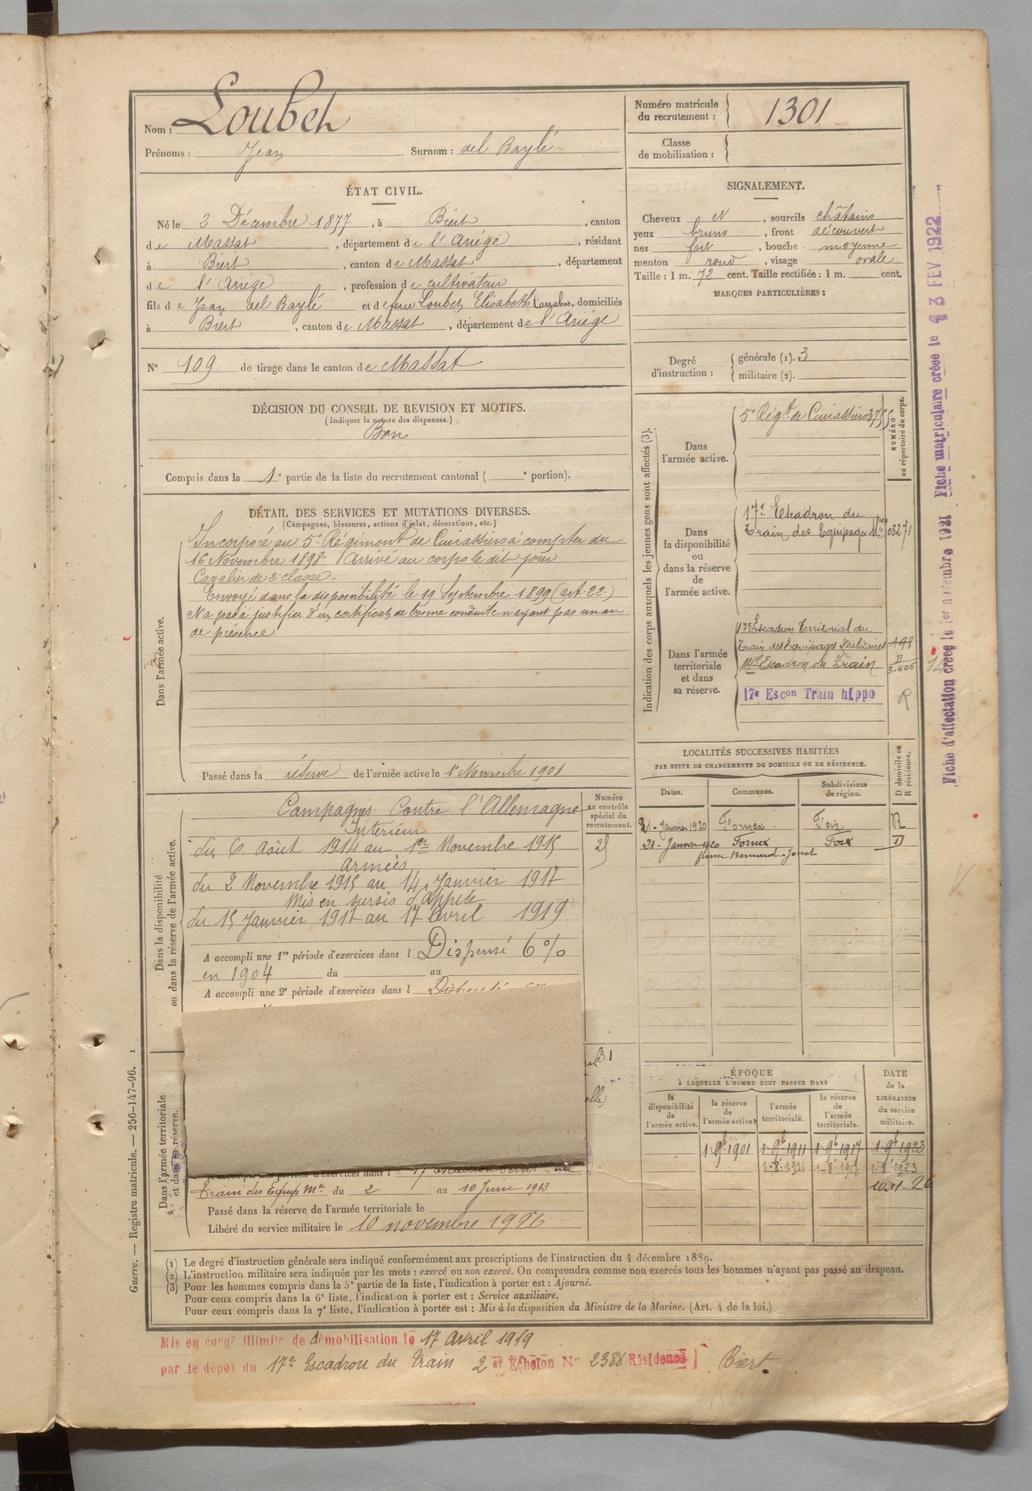 Nom : Loubet
Prénoms : Jean Surnom : del Baylé
Numéro matricule du recrutement : 1301
Classe de mobilisation :
ÉTAT CIVIL.
Né le 3 Décembre 1877, à Biert, canton
de Massat, département de l'Ariège, résidant
à Biert, canton de Massat, département
de l'Ariège, profession de cultivateur
fils de Jean del Baylé et de feue Loubet, Elisabeth, domiciliés
à Biert, canton de Massat, département de l'Ariège
N° 109 de tirage dans le canton de Massat
SIGNALEMENT.
Cheveux N, sourcils châtains
yeux bruns, front découvert
nez fort, bouche moyenne
menton rond, visage ovale
Taille : 1 m. 72 cent. Taille rectifiée : 1 m. cent.
MARQUES PARTICULIÈRES :
Degré d'instruction : générale (1). 3
militaire (2).
DÉCISION DU CONSEIL DE REVISION ET MOTIFS.
(Indiquer la nature des dispenses.)
Bon
Compris dans la 1e partie de la liste du recrutement cantonal ( e portion).
DÉTAIL DES SERVICES ET MUTATIONS DIVERSES.
(Campagnes, blessures, actions d'éclat, décorations, etc.)
Dans l'armée active.
Incorporé au 5e Régiment de Cuirassiers à compter du
16 Novembre 1898. Arrivé au corps le dit jour
Cavalier de 2e classe.
Envoyé dans la disponibilité le 19 Septembre 1899 (art. 22.)
N'a pas à justifier d'un certificat de bonne conduite n'ayant pas un an
de présence
Passé dans la réserve de l'armée active le 1er Novembre 1901
Indication des corps auxquels les jeunes gens sont affectés (3).
NUMÉRO au répertoire du corps.
Dans l'armée active.
5e Régt de Cuirassiers
Dans la disponibilité ou dans la réserve de l'armée active.
17e Escadron du
Train des Equipages
Dans l'armée territoriale et dans sa réserve.
17e Escadron Territorial du
Train des Equipages Militaires
Escadron du Train
17e Escon Train hippo
R
LOCALITÉS SUCCESSIVES HABITÉES
PAR SUITE DE CHANGEMENTS DE DOMICILE OU DE RÉSIDENCE.
Dates. Communes. Subdivisions de région. D domicile ou R résidence.
21 - Janvier 1920 Fornex - Foix R
21 - Janvier 1920 Fornex Foix D
Dans la disponibilité ou dans la réserve de l'armée active.
Numéro au contrôle spécial du recrutement.
Campagnes Contre l'Allemagne
Intérieur
du 6 Août 1914 au 1er Novembre 1915
Armées
du 2 Novembre 1915 au 14 Janvier 1917
Mis en sursis d'appel
du 15 Janvier 1917 au 17 avril 1919
A accompli une 1re période d'exercices dans l Dispensé 6 %
en 1904 du au
A accompli une 2e période d'exercices dans l
Dans l'armée territoriale et dans sa réserve.
Train des Equip. Mres du 2 au 10 Juin 1913
Passé dans la réserve de l'armée territoriale le
Libéré du service militaire le 10 novembre 1926
ÉPOQUE
À LAQUELLE L'HOMME DOIT PASSER DANS
DATE de la LIBÉRATION du service militaire.
la disponibilité de l'armée active. la réserve de l'armée active. l'armée territoriale. la réserve de l'armée territoriale.
1-9b 1901 1-9b 1911 1-9b 1917 1-9b 1923
Guerre. — Registre matricule. — 256-147-96.
(1) Le degré d'instruction générale sera indiqué conformément aux prescriptions de l'instruction du 4 décembre 1889.
(2) L'instruction militaire sera indiquée par les mots : exercé ou non exercé. On comprendra comme non exercés tous les hommes n'ayant pas passé au drapeau.
(3) Pour les hommes compris dans la 5e partie de la liste, l'indication à porter est : Ajourné.
Pour ceux compris dans la 6e liste, l'indication à porter est : Service auxiliaire.
Pour ceux compris dans la 7e liste, l'indication à porter est : Mis à la disposition du Ministre de la Marine. (Art. 4 de la loi.)
Mis en congé illimité de démobilisation le 17 avril 1919
par le dépôt du 17e Escadron du Train 2 e Echelon No 2388 Résidence Biert.
Fiche d'affectation créée le 1er novembre 1921 Fiche matriculaire créée le 3 FEV 1922